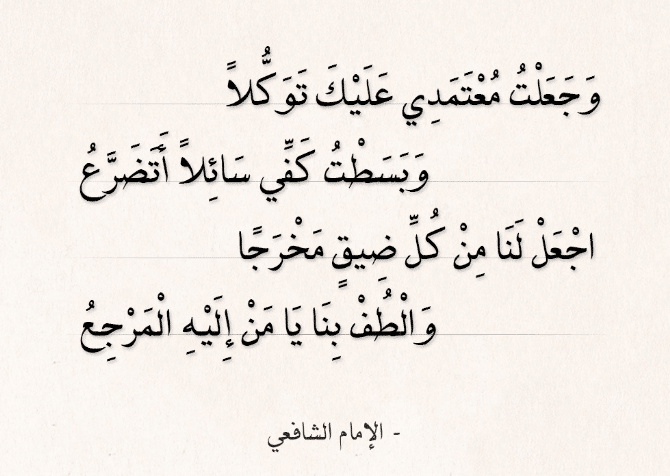 وَجَعَلْتُ مُعْتَمَدِي عَلَيْكَ تَوَكُّلاً
وَبَسَطْتُ كَفِّي سَائِلاً أَتَضَرَّعُ
اجْعَلْ لَنَا مِنْ كُلِّ ضِيقٍ مَخْرَجًا
وَالْطُفْ بِنَا يَا مَنْ إِلَيْهِ الْمَرْجِعُ
- الإمام الشافعي